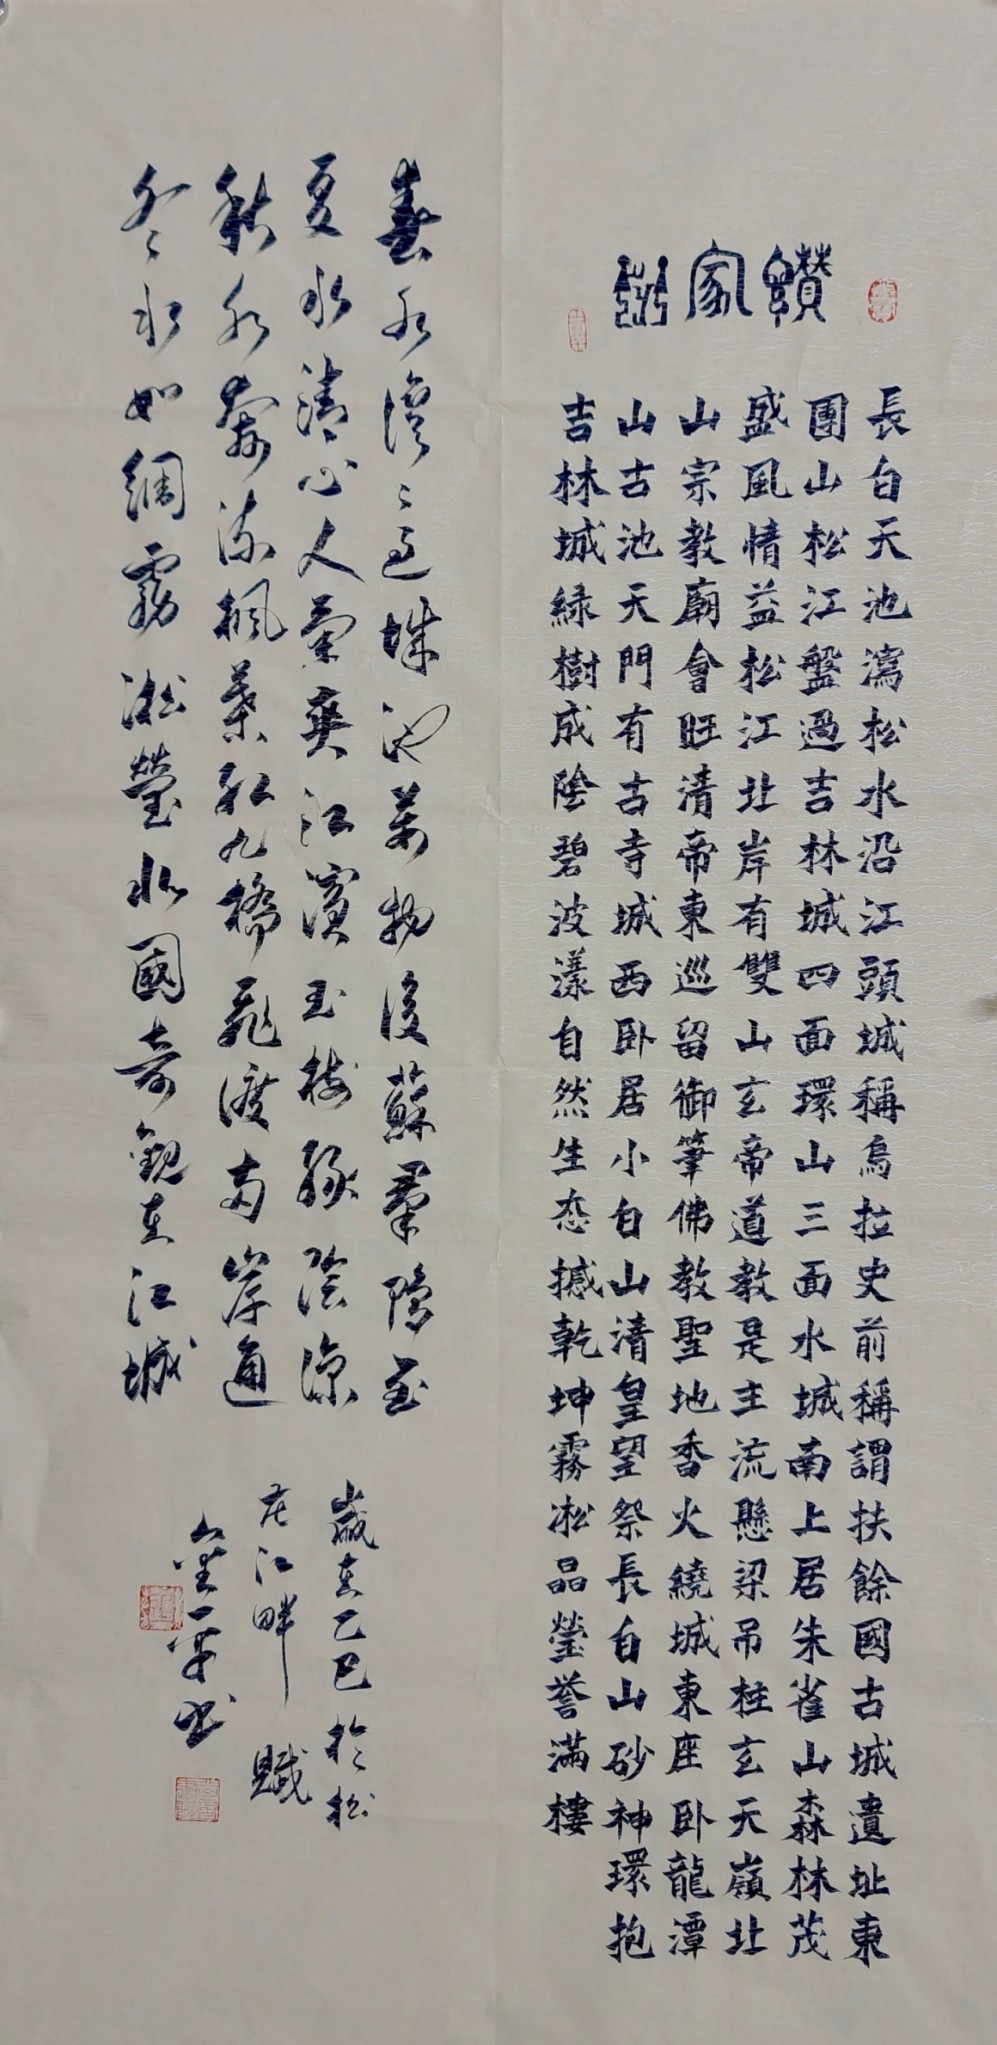 讚家鄉
長白天池瀉松水沿江頭城稱烏拉史前稱謂扶餘國古城遺址東
團山松江盤過吉林城四面環山三面水城南上居朱雀山森林茂
盛風情益松江北岸有雙山玄帝道教是主流懸梁吊柱玄天嶺北
山宗教廟會旺清帝東巡留御筆佛教聖地香火繞城東座卧龍潭
山古池天門有古寺城西卧居小白山清皇望祭長白山砂神環抱
吉林城綠樹成陰碧波漾自然生态撼乾坤霧凇品瑩誉滿樓
春水漫々過城池萬物復蘇羣隆至
夏水清心人氣爽江濱玉樹綠陰涼
秋水奔流楓葉紅九橋飛渡两岸通
冬水如綢霧凇瑩北國奇觀在江城
歲在乙巳於松
花江畔 賦
金一安书